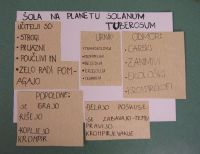 ŠOLA NA PLANETU SOLANUM
TUBEROSUM
UČITELJI SO:
-STROGI
-PRIJAZNI
-POUČLJIVI IN
-ZELO RADI POM-
AGAJO
URNIK:
ODMORI:
-CARSKI
-ZANIMIVI
-EKOLOŠKI
-KROMPIRČKOVI
POPOLDNE:
-SE IGRAJO
-RIŠEJO
-KOPLJEJO
KROMPIR
-DELAJO POSKUSE
-SE ZABAVAJO-TEMU
PRAVIJO
KROMPIRJEVANJE